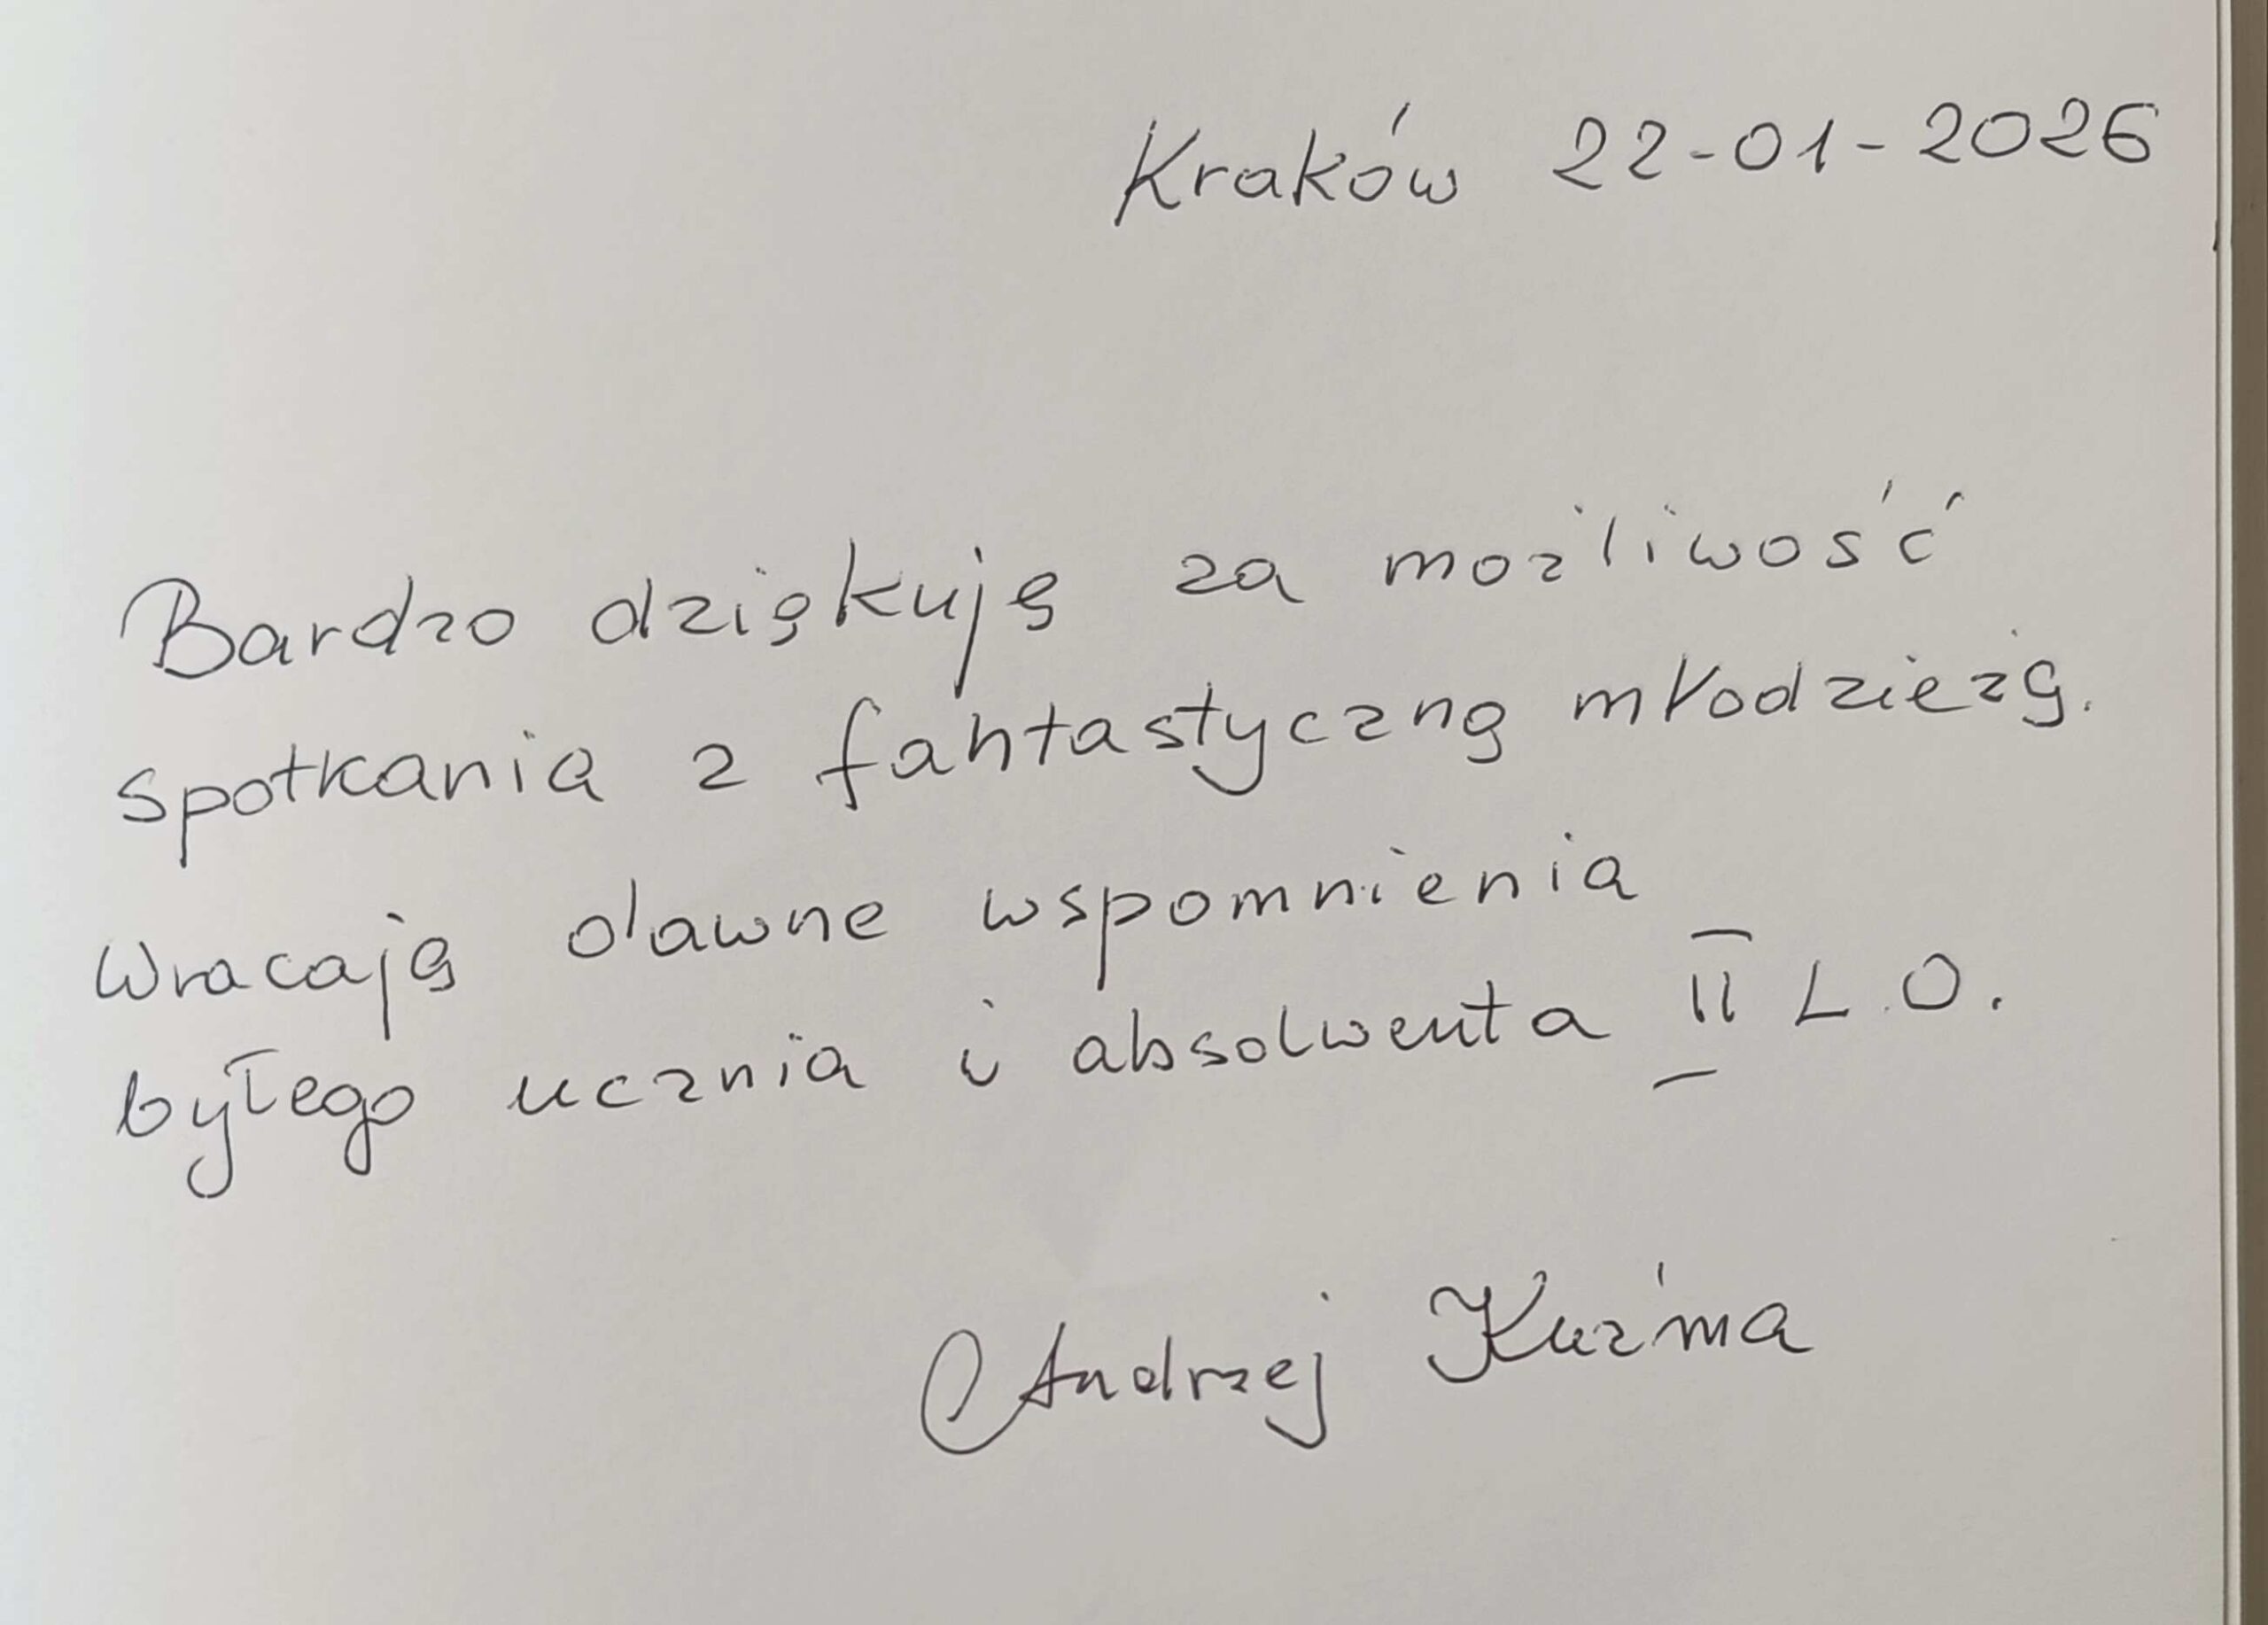 Kraków 22-01-2026
Bardzo dziękuję za możliwość
spotkania z fantastyczną młodzieżą.
Wracają dawne wspomnienia
byłego ucznia i absolwenta II L.O.
Andrzej Kuźma